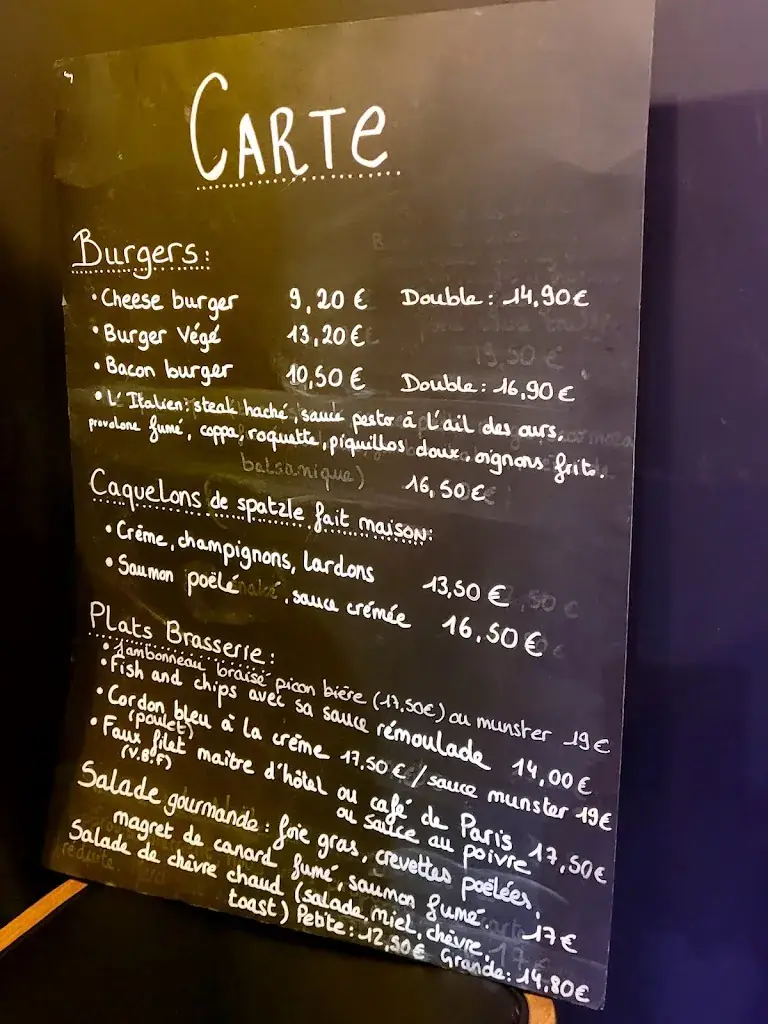 CARTE
Burgers:
• Cheese burger 9,20 € Double: 14,90€
• Burger Végé 13,20€
• Bacon burger 10,50 € Double: 16,90€
• L'Italien: steak haché, sauce pesto à l'ail des ours,
provolone fumé, coppa, roquette, piquillos doux, oignons frits.
balsamique) 16,50€
Caquelons de spatzle fait maison:
• Crème, champignons, lardons 13,50 €
• Saumon poêlé, sauce crémée 16,50€
Plats Brasserie:
• Jambonneau braisé picon bière (17.50€) ou munster 19€
• Fish and chips avec sa sauce rémoulade 14,00€
• Cordon bleu à la crème 17.50€/sauce munster 19€
(poulet)
• Faux filet maître d'hôtel ou café de Paris
(V.B.F) ou sauce au poivre 17,50€
Salade gourmande: foie gras, crevettes poëlées,
magret de canard fumé, saumon fumé. 17€
Salade de chèvre chaud (salade, miel, chèvre,
toast) Petite: 12,50€ Grande: 14,80€